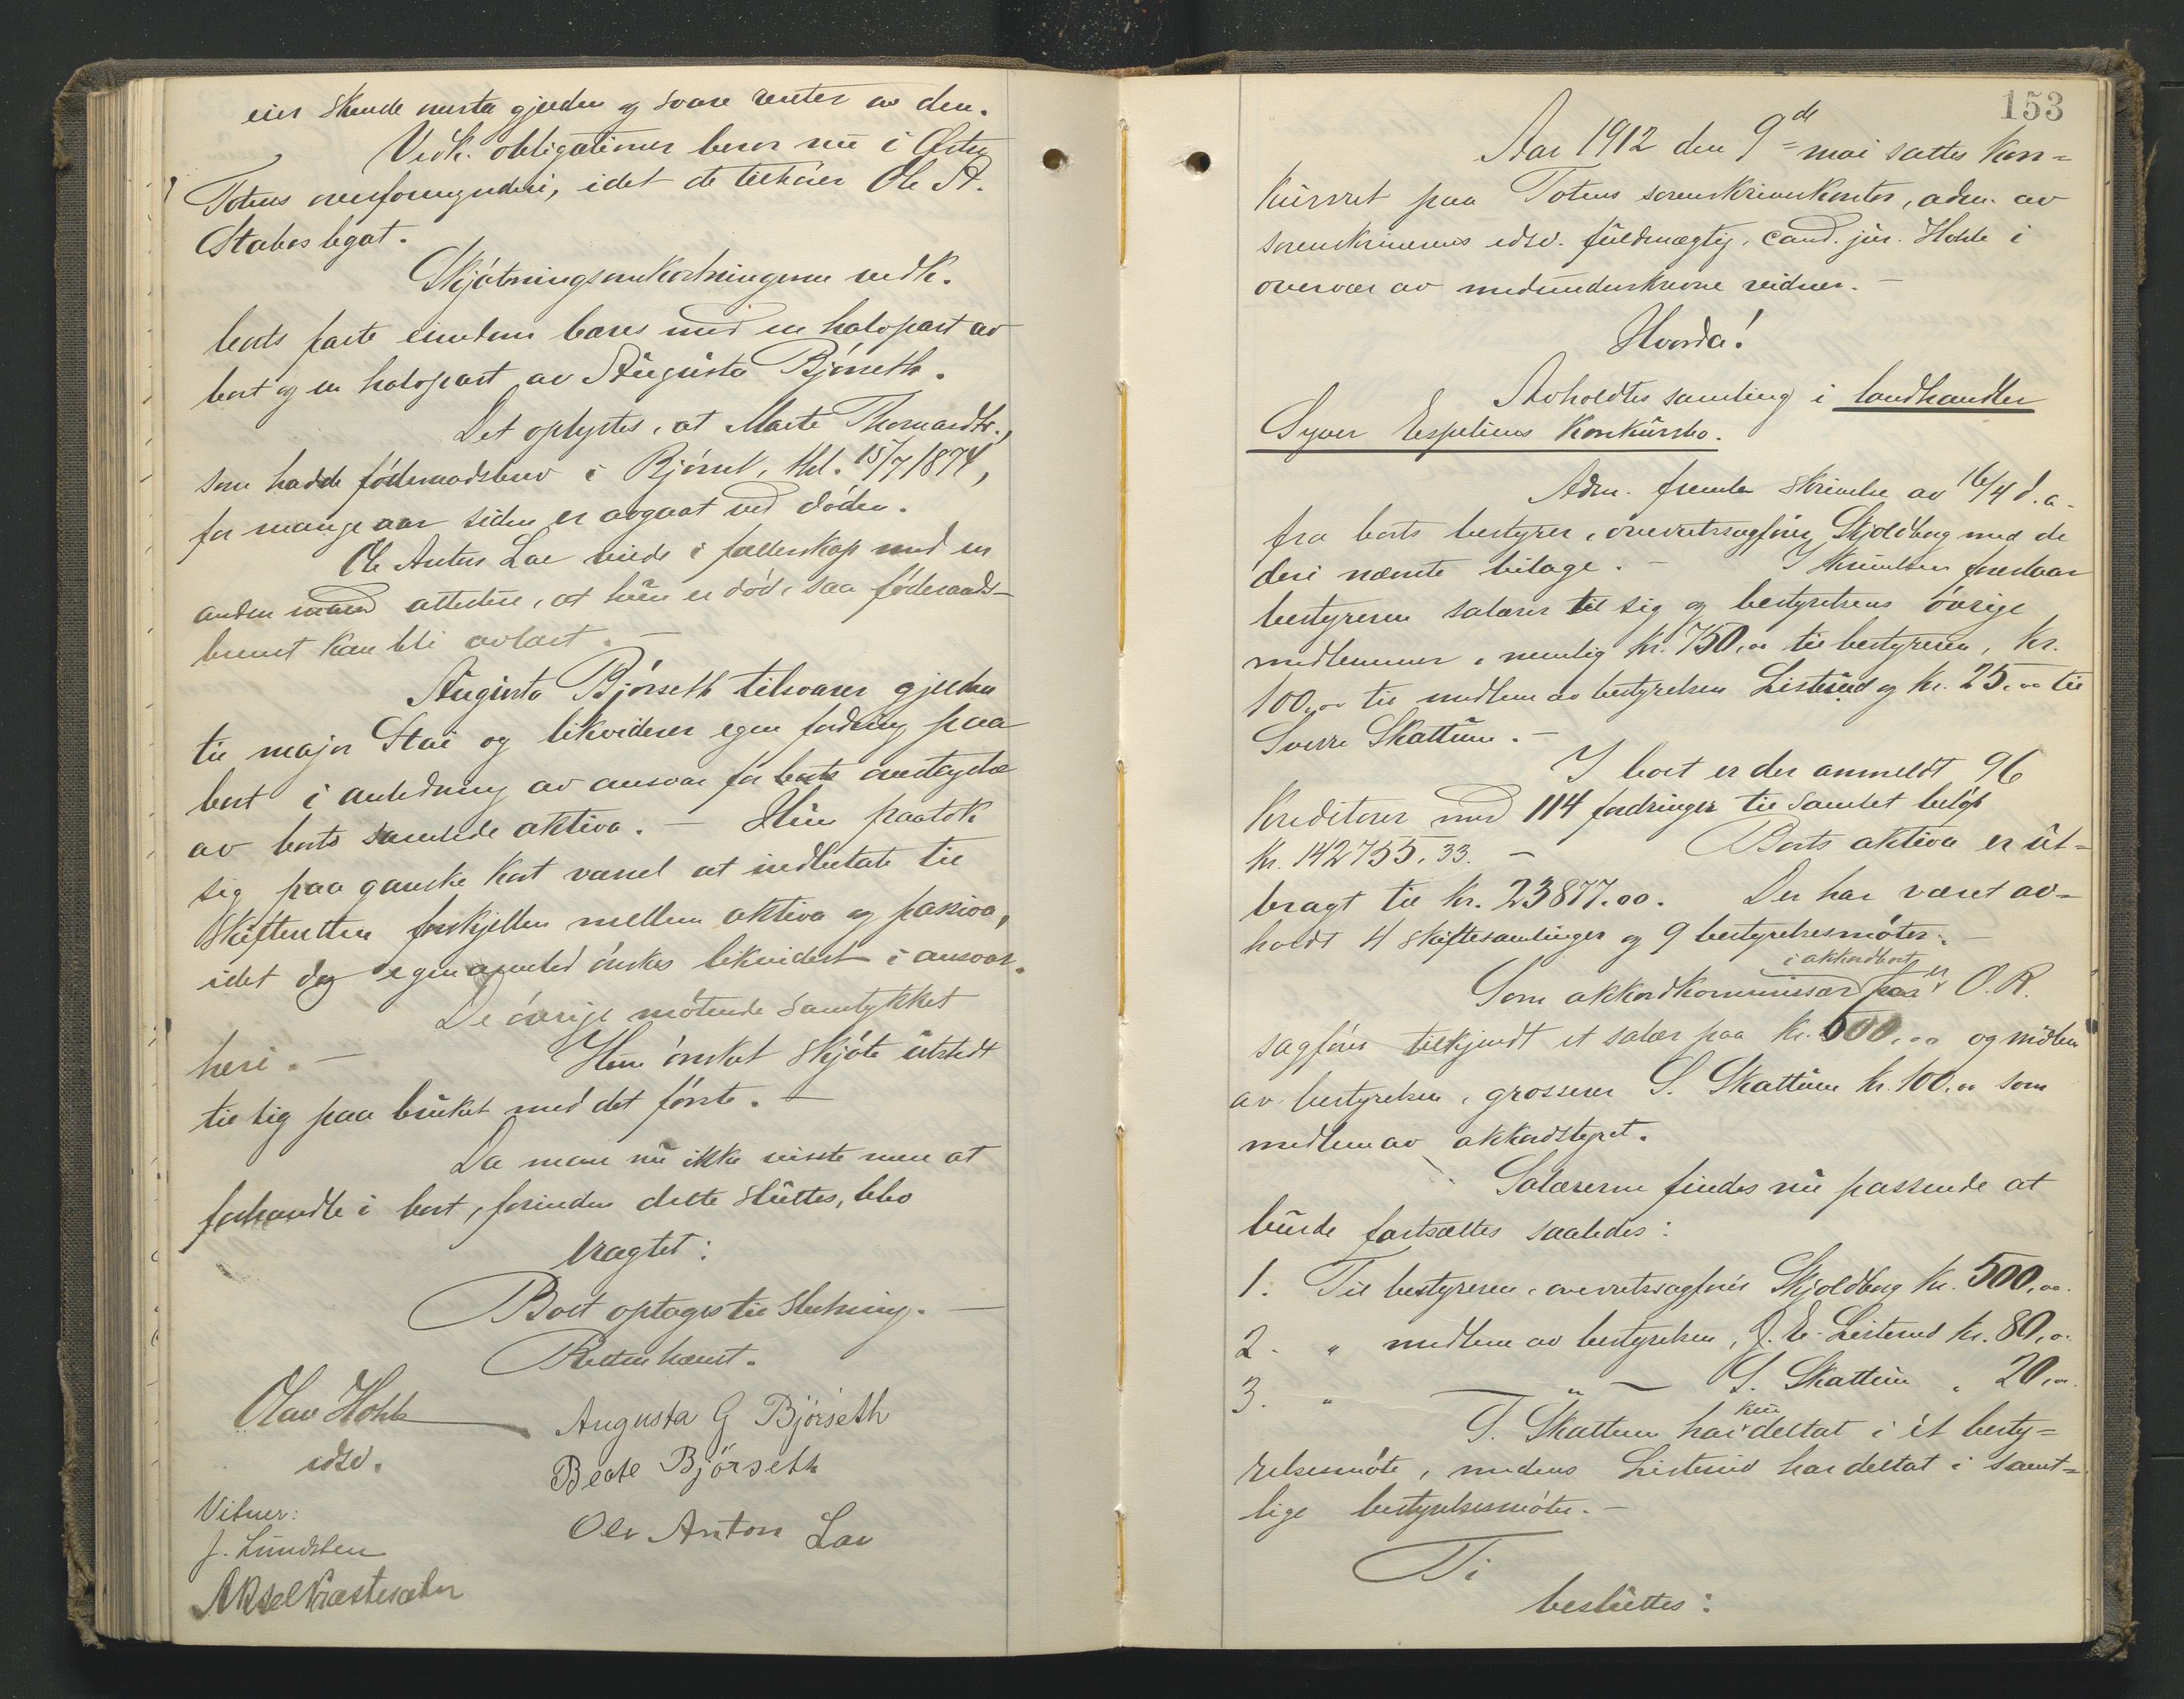 eier skulde overta gjælden og svare renter av den.
Vedk. obligationer beror nu i Østre
Totens overformynderi, idet de tilhører Ole A.
Stabos legat.
Skjøtningsomkostningerne vedk.
boets faste eiendom bæres med en halvpart av
boet og en halvpart av Augusta Bjørseth.
Det oplystes, at Marte Thomasdtr.,
som hadde føderaadsbrev i Bjørset, thl. 15/7 1874,
for mange aar siden er avgaat ved døden.
Ole Anton Lae vilde i fællesskap med en
anden mand attestere, at hun er død, saa føderaads-
brevet kan bli avlæst. -
Augusta Bjørseth tilsvarer gjælden
til major Stai og likviderer egen fordring paa
boet i anledning av ansvar for boets overtagelse
av boets samlede aktiva. - Hun paatok
sig paa ganske kort varsel at indbetale til
skifteretten forskjellen mellem aktiva og passiva,
idet dog egen arvelod ønskes likvidert i ansvar.
De øvrige møtende samtykket
heri. - Hun ønsket skjøte utstedt
til sig paa bruket med det første. -
Da man nu ikke visste mere at
forhandle i boet, forinden dette sluttes, blev
bragtet:
Boet optages til slutning. -
Retten hævet.
Olav Hohle
edsv.
Augusta G Bjørseth
Beate Bjørseth
Ole Anton Lae
Vitner:
J. Lundsten
Aksel Præstesæter
153
Aar 1912 den 9de mai sattes kon=
kursret paa Totens sorenskriverkontor, adm. av
sorenskriverens edsv. fuldmægtig, cand. jur. Hohle i
overvær av medunderskrevne vidner. -
Hvorda!
Avholdtes samling i landhandler
Syver Espeliens konkursbo.
Adm. fremla skrivelse av 16/4 d. a.
fra boets bestyrer, overretssagfører Skjoldborg med de
deri nævnte bilage. - I skrivelsen foreslaar
bestyreren salærer til sig og bestyrelsens øvrige
medlemmer, nemlig kr. 750,00 til bestyreren, kr.
100,00 til medlem av bestyrelsen Listerud og kr. 25,00 til
Sverre Skattum. -
I boet er der anmeldt 96
kreditorer med 114 fordringer til samlet beløp
kr. 142755,33. - Boets aktiva er ut=
bragt til kr. 23877.00. Der har været av=
holdt 4 skiftesamlinger og 9 bestyrelsesmøter. -
i akkordboet er
Som akkordkommissær paa O.R.
sagfører tilkjendt et salær paa kr. 500,00 og medlem
av bestyrelsen, grosserer S. Skattum kr. 100,00 som
medlem av akkordstyret.
Salærerne findes nu passende at
burde fastsættes saaledes:
1. Til bestyreren, overretssagfører Skjoldborg kr. 500,00.
2. " medlem av bestyrelsen, J. E. Listerud kr. 80,00
3. " — " — S. Skattum " 20,00.
kun
S. Skattum har deltat i et besty=
relsesmøte, medens Listerud har deltat i samt=
lige bestyrelsesmøter. -
Ti
besluttes: